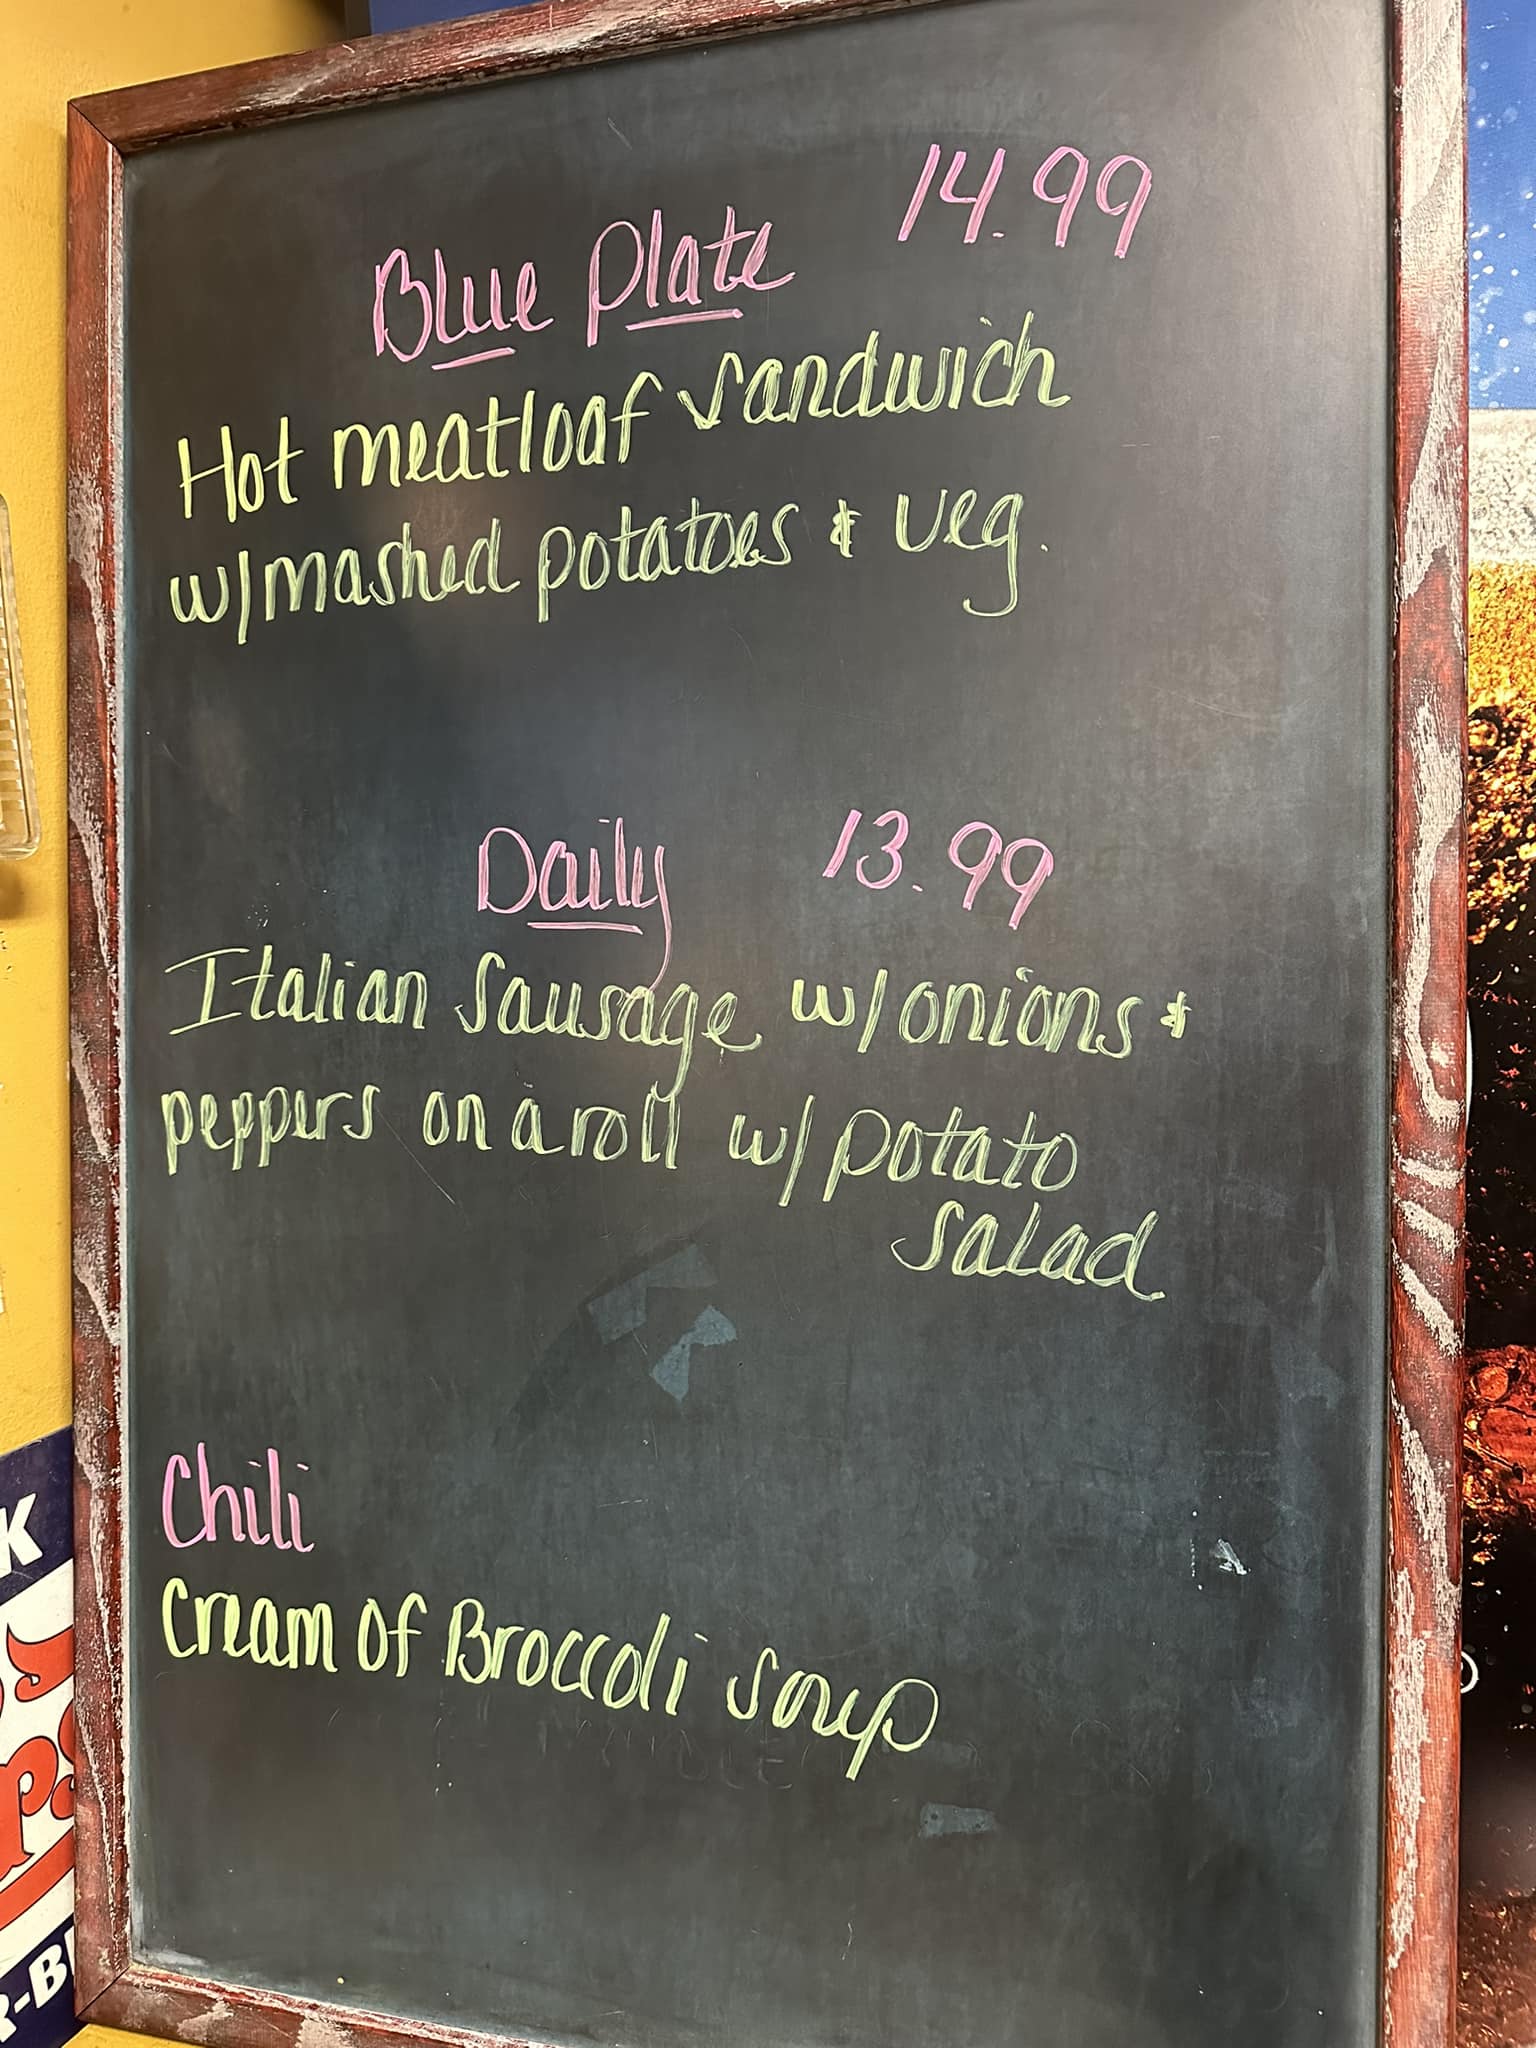 Blue Plate 14.99
Hot meatloaf sandwich
w/mashed potatoes & veg.
Daily 13.99
Italian Sausage w/onions &
peppers on a roll w/ potato
salad
Chili
Cream of Broccoli soup
K